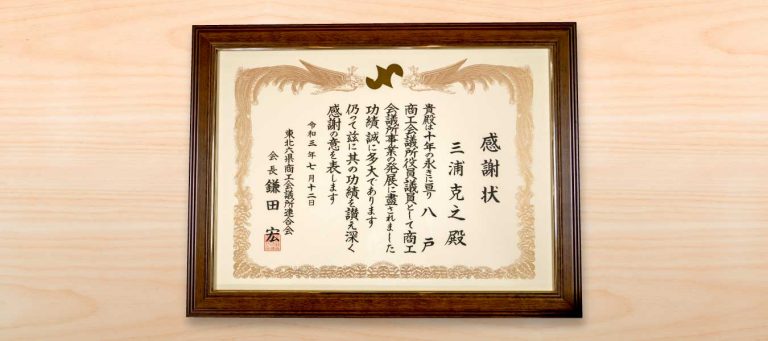 感謝状
三浦克之殿
貴殿は十年の永きに亘り八戸
商工会議所役員議員として商工
会議所事業の発展に盡されました
功績誠に多大であります
仍って茲に其の功績を讃え深く
感謝の意を表します
令和三年七月十二日
東北六県商工会議所連合会
会長鎌田宏